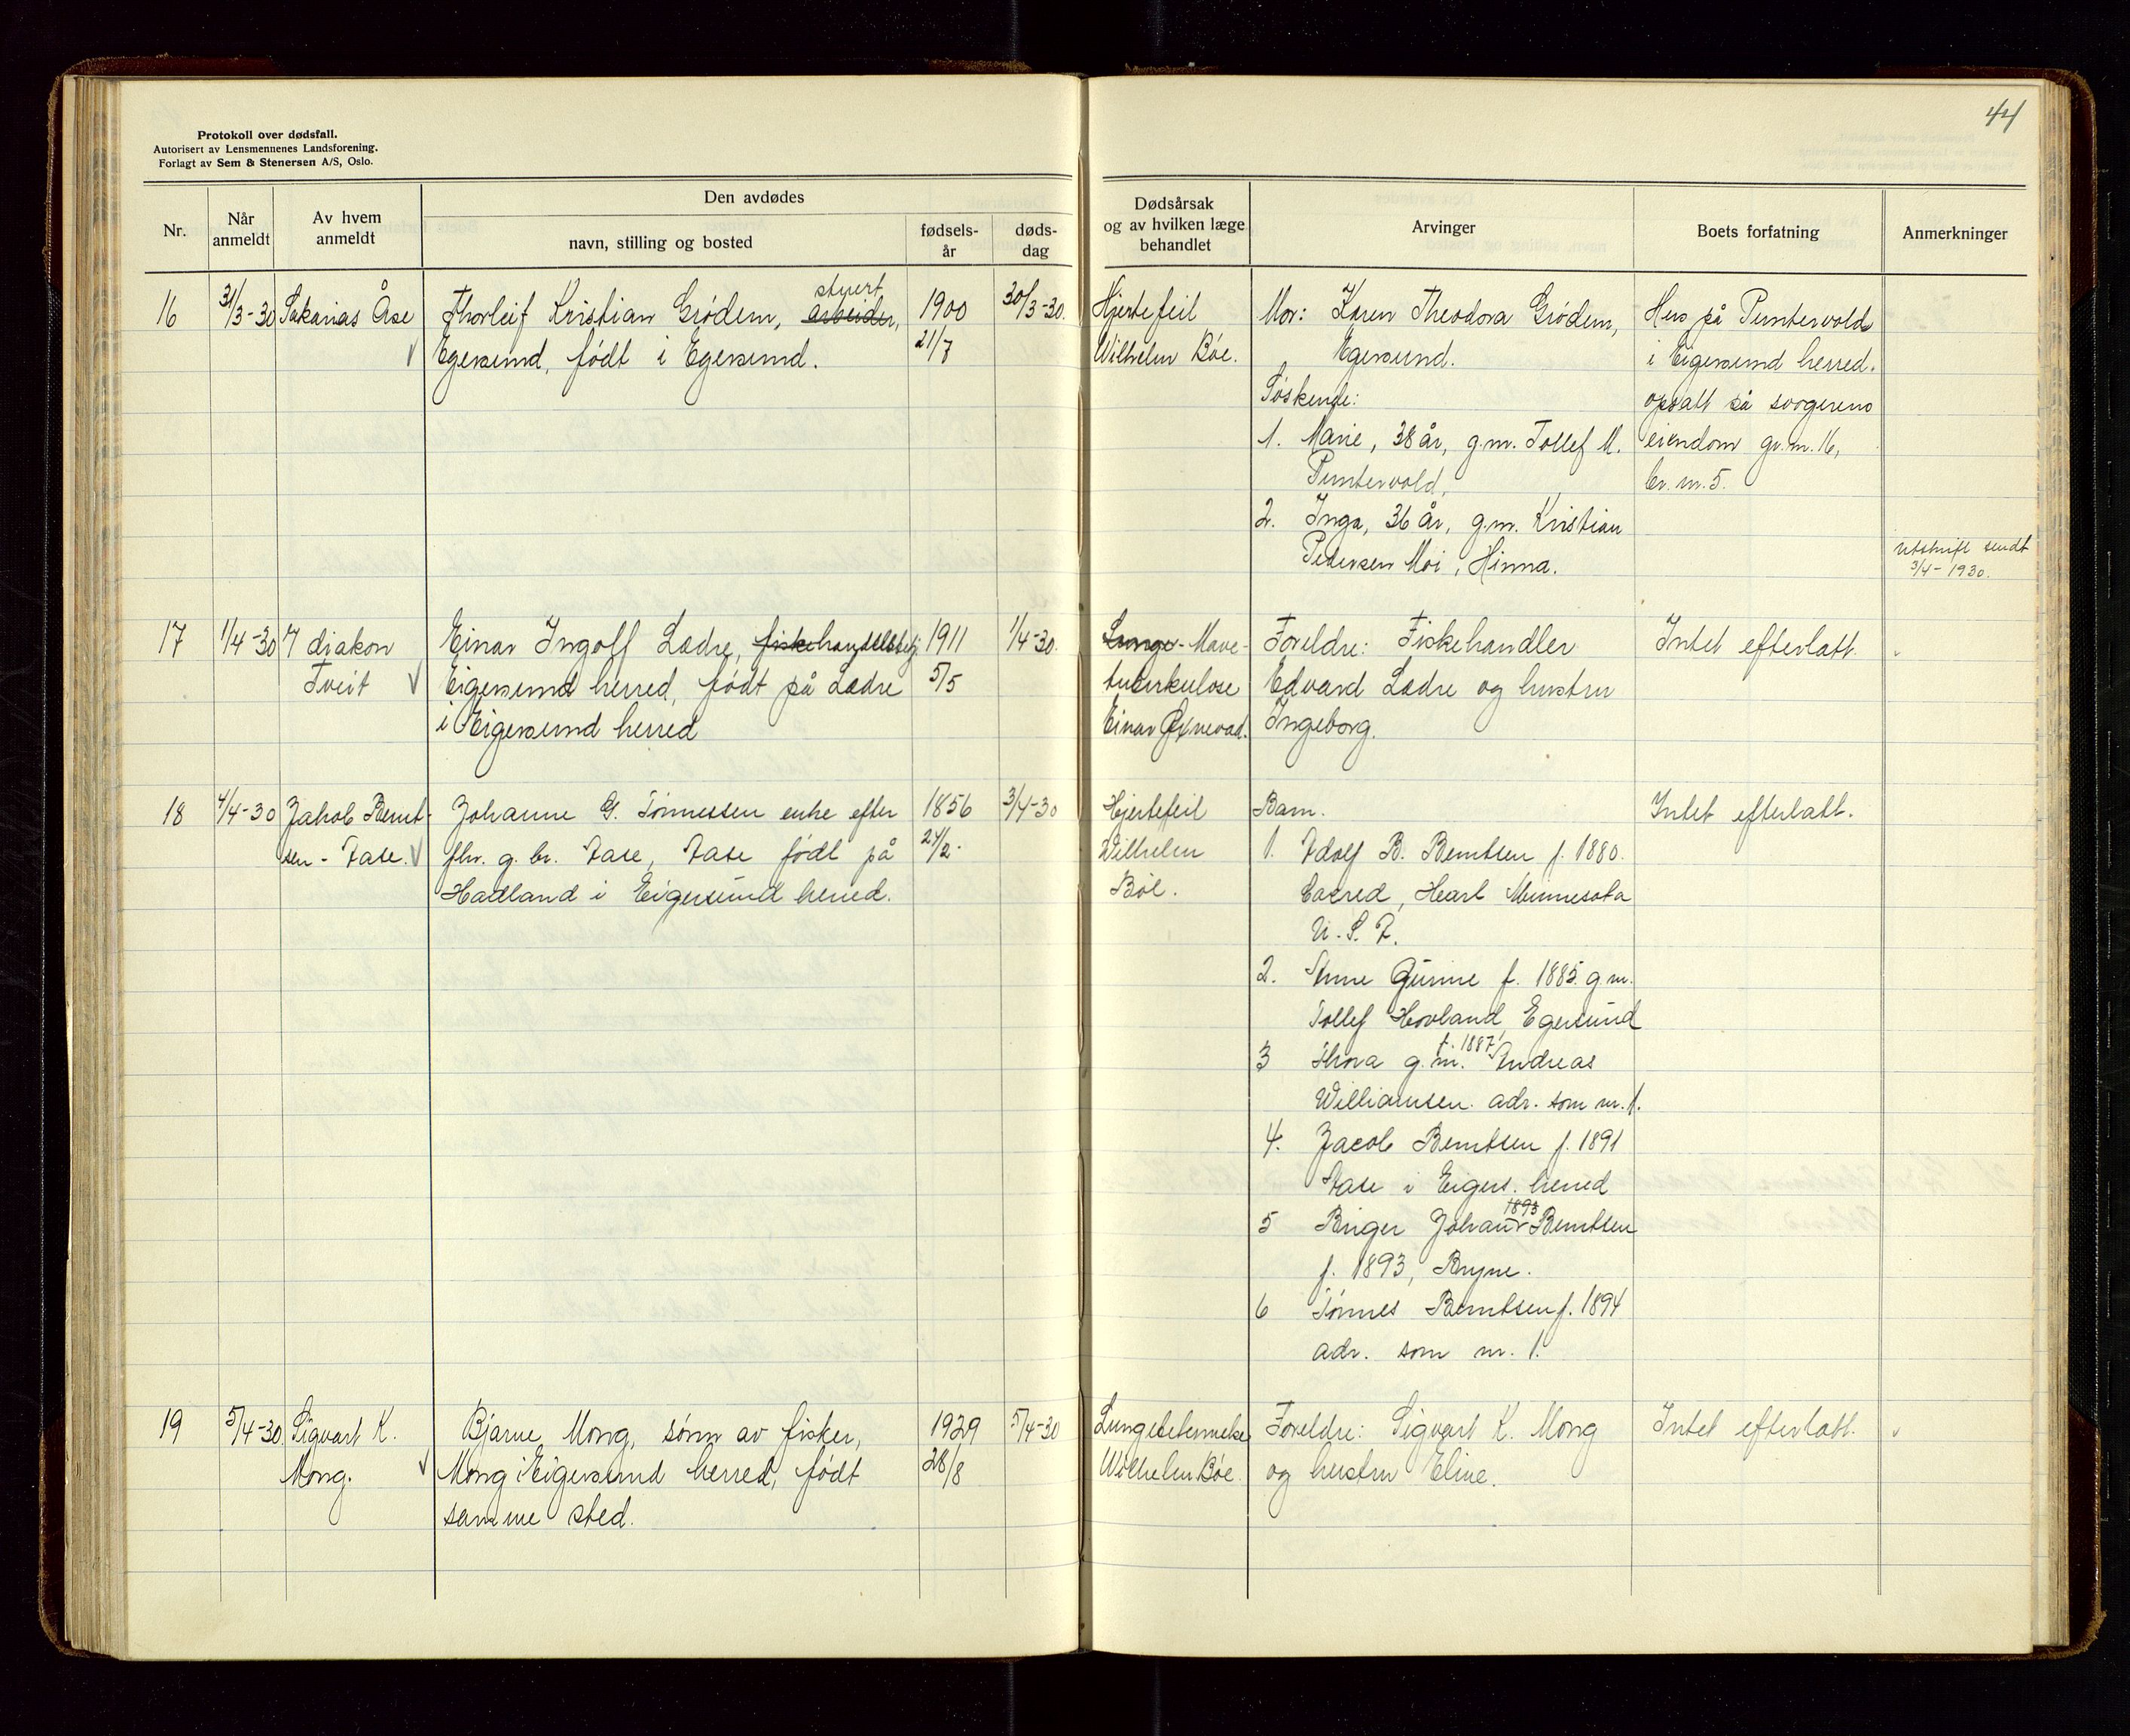 44
Protokoll over dødsfall.
Autorisert av Lensmennenes Landsforening.
Forlagt av Sem & Stenersen A/S, Oslo.
Nr.
Når anmeldt
Av hvem anmeldt
Den avdødes
navn, stilling og bosted
fødsels-år
døds-dag
Dødsårsak
og av hvilken læge
behandlet
Arvinger
Boets forfatning
Anmerkninger
16
31/3-30
Sakarias Åse
Thorleif Kristian Grødem, arbeider, styert
Egersund, født i Egersund.
1900
21/7
30/3-30.
Hjertefeil
Wilhelm Bøe.
Mor: Karen Theodora Grødem,
Egersund.
Søskende:
1. Marie, 38 år, g.m. Tollef M.
Puntervold,
2. Inga, 36 år, g.m. Kristian
Pedersen Moi, Hinna.
Hus på Puntervold
i Eigersund herred.
opsatt på svogerens
eiendom gr.nr. 16,
br. nr. 5.
Utskrift sendt
3/4-1930.
17
1/4-30
diakon
Tveit
Einar Ingolf Lædre, fiskehandlels
Eigersund herred, født på Lædre
i Eigersund herred
1911
5/5
1/4-30.
Lunge- Mave-
tuberkulose
Einar Øxnevad.
Foreldre: Fiskehandler
Edvard Lædre og hustru
Ingeborg.
Intet efterlatt.
18
4/4-30
Jakob Bernt-
sen - Aase.
Johanne G. Tønnessen enke efter
fhv. g. br. Aase, Aase født på
Hadland i Eigersund herred.
1856
24/2
3/4-30
Hjertefeil
Wilhelm
Böe.
Barn.
1. Adolf B. Berntsen f. 1880.
Sacred, Heart Minnesota
U. S. A.
2. Anne Gurine f. 1885. g.m.
Tollef Hovland, Egersund
3 Thora g.m. f. 1887 Andreas
Williamsen. adr. som nr. 1.
4. Jacob Berntsen f. 1891
Aase i Eigers. herred
5 Birger Johan 1893 Berntsen
f. 1893, Bryne.
6 Tønnes Berntsen f. 1894
adr. som nr. 1.
Intet efterlatt.
19
5/4-30
Sigvart K.
Mong.
Bjarne Mong, sønn av fisker,
Mong i Eigersund herred, født
samme sted.
1929
28/8
5/4-30
Lungebetennelse
Wilhelm Bøe.
Foreldre: Sigvart K. Mong
og hustru Eline.
Intet efterlatt.